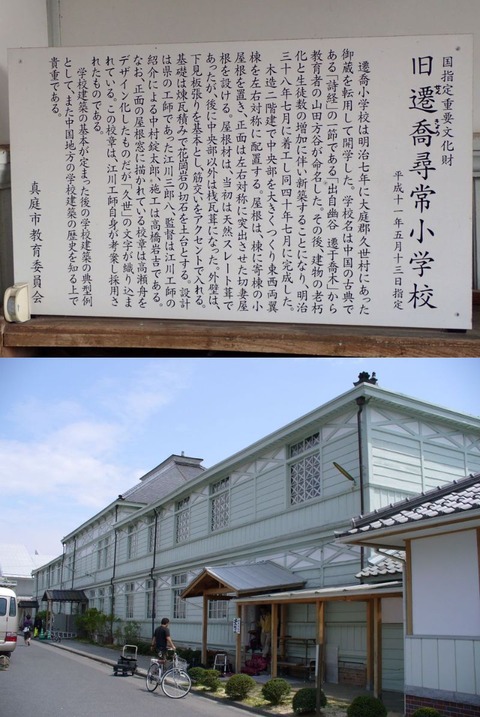 国指定重要文化財
旧遷喬尋常小学校
平成十一年五月十三日指定
遷喬小学校は明治七年に大庭郡久世村にあった
御蔵を転用して開学した。学校名は中国の古典で
ある「詩経」の一節である「出自幽谷 遷于喬木」から
教育者の山田方谷が命名した。その後、建物の老朽
化と生徒数の増加に伴い新築することになり、明治
三十八年七月に着工し同四十年七月に完成した。
木造二階建で中央部を大きくつくり東西両翼
棟を左右対称に配置する。屋根は、棟に寄棟の小
屋根を置き、正面は左右対称に突出させた切妻屋
根を設ける。屋根材は、当初は天然スレート葺で
あったが、後に中央部以外は桟瓦葺になった。外壁は、
下見板張りを基本とし、筋交いをアクセントで入れる。
基礎は煉瓦積みで花岡岩の切石を土台とする。設計
は県の工師であった江川三郎八、監督は江川工師の
紹介による中村錠太郎、施工は高橋岩吉である。
なお、正面の屋根窓に描かれている校章は高瀬舟を
デザイン化したものだが「久世」の文字が織り込ま
れている。この校章は、江川工師自身が考案し採用さ
れたものである。
学校建築の基本が定まった後の学校建築の典型例
として、また中国地方の学校建築の歴史を知る上で
貴重である。
真庭市教育委員会